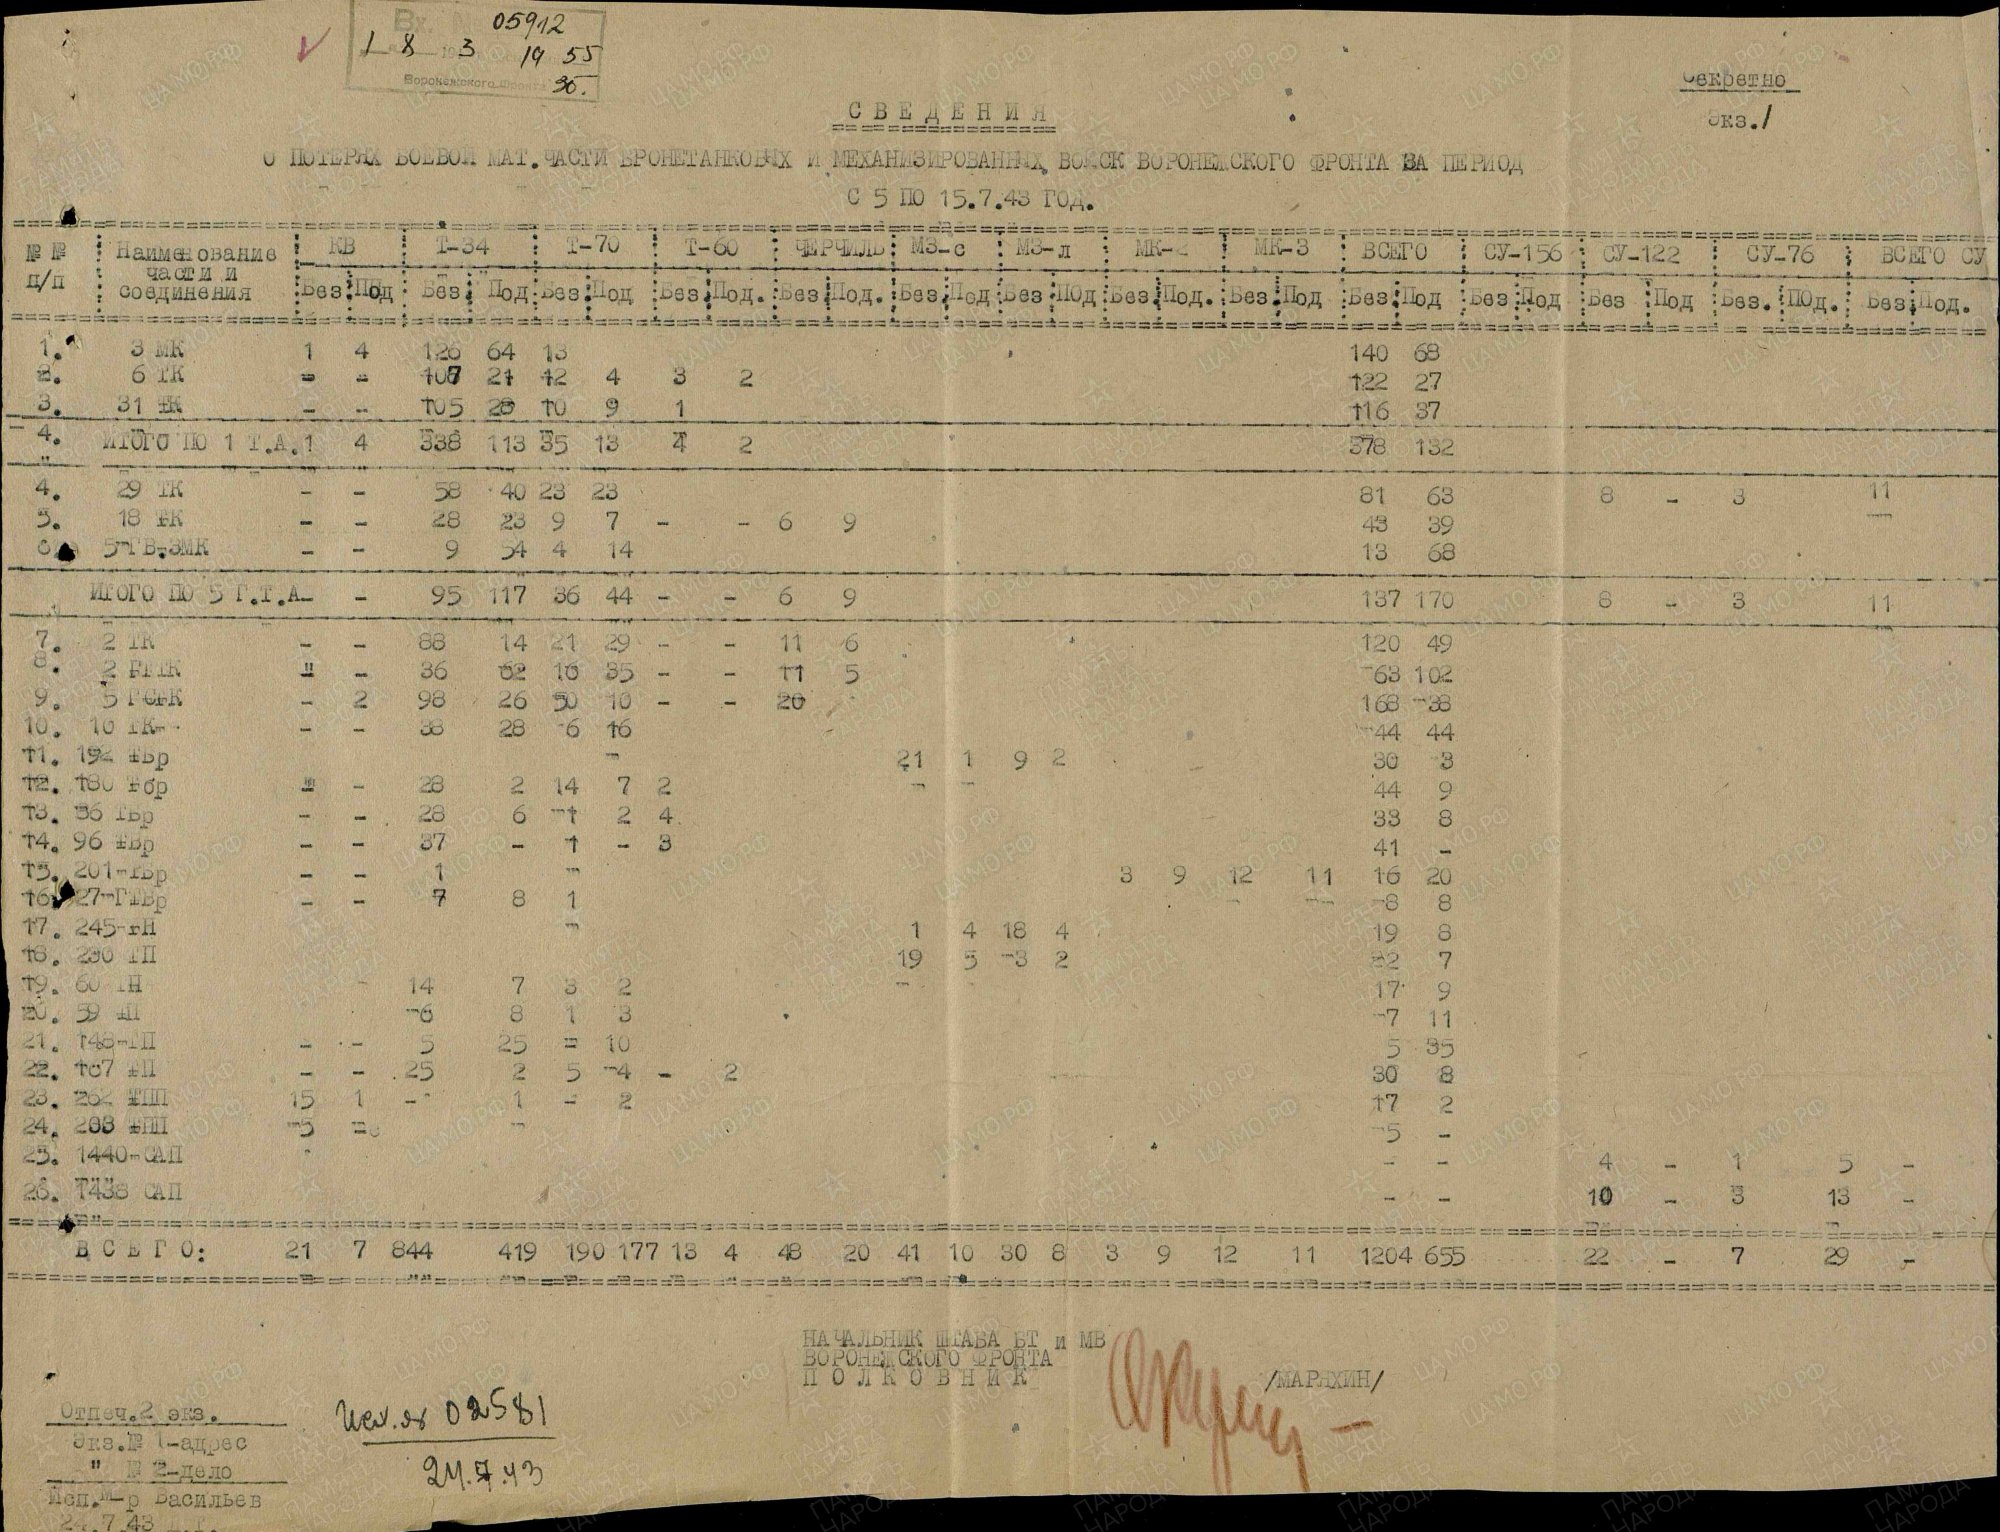 Вх. №
05912
1 8 3 19 55
Воронежского фронта 30.
Секретно
Экз.1
СВЕДЕНИЯ
О ПОТЕРЯХ БОЕВОЙ МАТ.ЧАСТИ БРОНЕТАНКОВЫХ И МЕХАНИЗИРОВАННЫХ ВОЙСК ВОРОНЕЖСКОГО ФРОНТА ЗА ПЕРИОД
С 5 ПО 15.7.43 ГОД.
№№ Наименование КВ Т-34 Т-70 Т-60 ЧЕРЧИЛЬ МЗ-с МЗ-л МК-2 МК-3 ВСЕГО СУ-156 СУ-122 СУ-76 ВСЕГО СУ
п/п части и
соединения Без Под Без Под Без Под Без Под. Без Под. Без Под Без Под Без Под. Без Под Без Под Без Под Без Под Без. Под. Без Под.
1. 3 МК 1 4 126 64 13 140 68
2. 6 ТК - - 107 21 12 4 3 2 122 27
3. 31 ТК - - 105 28 10 9 1 116 37
4. ИТОГО ПО 1 Т.А. 1 4 338 113 35 13 4 2 378 132
4. 29 ТК - - 58 40 23 23 81 63 8 - 3 11
5. 18 ТК - - 28 23 9 7 - - 6 9 43 39
6. 5-ГВ.ЗМК - - 9 54 4 14 13 68
ИТОГО ПО 5 Г.Т.А - - 95 117 36 44 - - 6 9 137 170 8 - 3 11
7. 2 ТК - - 88 14 21 29 - - 11 6 120 49
8. 2 ГТТК - - 36 62 16 35 - - 11 5 63 102
9. 5 ГСТК - 2 98 26 50 10 - - 20 168 38
10. 10 ТК- - - 38 28 6 16 44 44
11. 192 ТБр 21 1 9 2 30 3
12. 180 Тбр - - 28 2 14 7 2 44 9
13. 86 ТБр - - 28 6 1 2 4 33 8
14. 96 ТБр - - 37 - 1 - 3 41 -
15. 201-ТБр - - 1 3 9 12 11 16 20
16. 27-ГТБр - - 7 8 1 8 8
17. 245-ТП 1 4 18 4 19 8
18. 230 ТП 19 5 3 2 22 7
19. 60 ТП 14 7 3 2 17 9
20. 59 ТП 6 8 1 3 7 11
21. 148-ТП - - 5 25 = 10 5 35
22. 167 ТП - - 25 2 5 4 - 2 30 8
23. 262 ТПП 15 1 - 1 - 2 17 2
24. 203 ТПП 5 - 5 -
25. 1440-САП - - 4 - 1 5 -
26. 1438 САП - - 10 - 3 13 -
ВСЕГО: 21 7 844 419 190 177 13 4 48 20 41 10 30 8 3 9 12 11 1204 655 22 - 7 29 -
НАЧАЛЬНИК ШТАБА БТ и МВ
ВОРОНЕЖСКОГО ФРОНТА
ПОЛКОВНИК /МАРЯХИН/
Отпеч.2 экз.
Экз.№ 1-адрес
" № 2-дело
Исп.м-р Васильев
24.7.43
Исх. № 02581
24.7.43